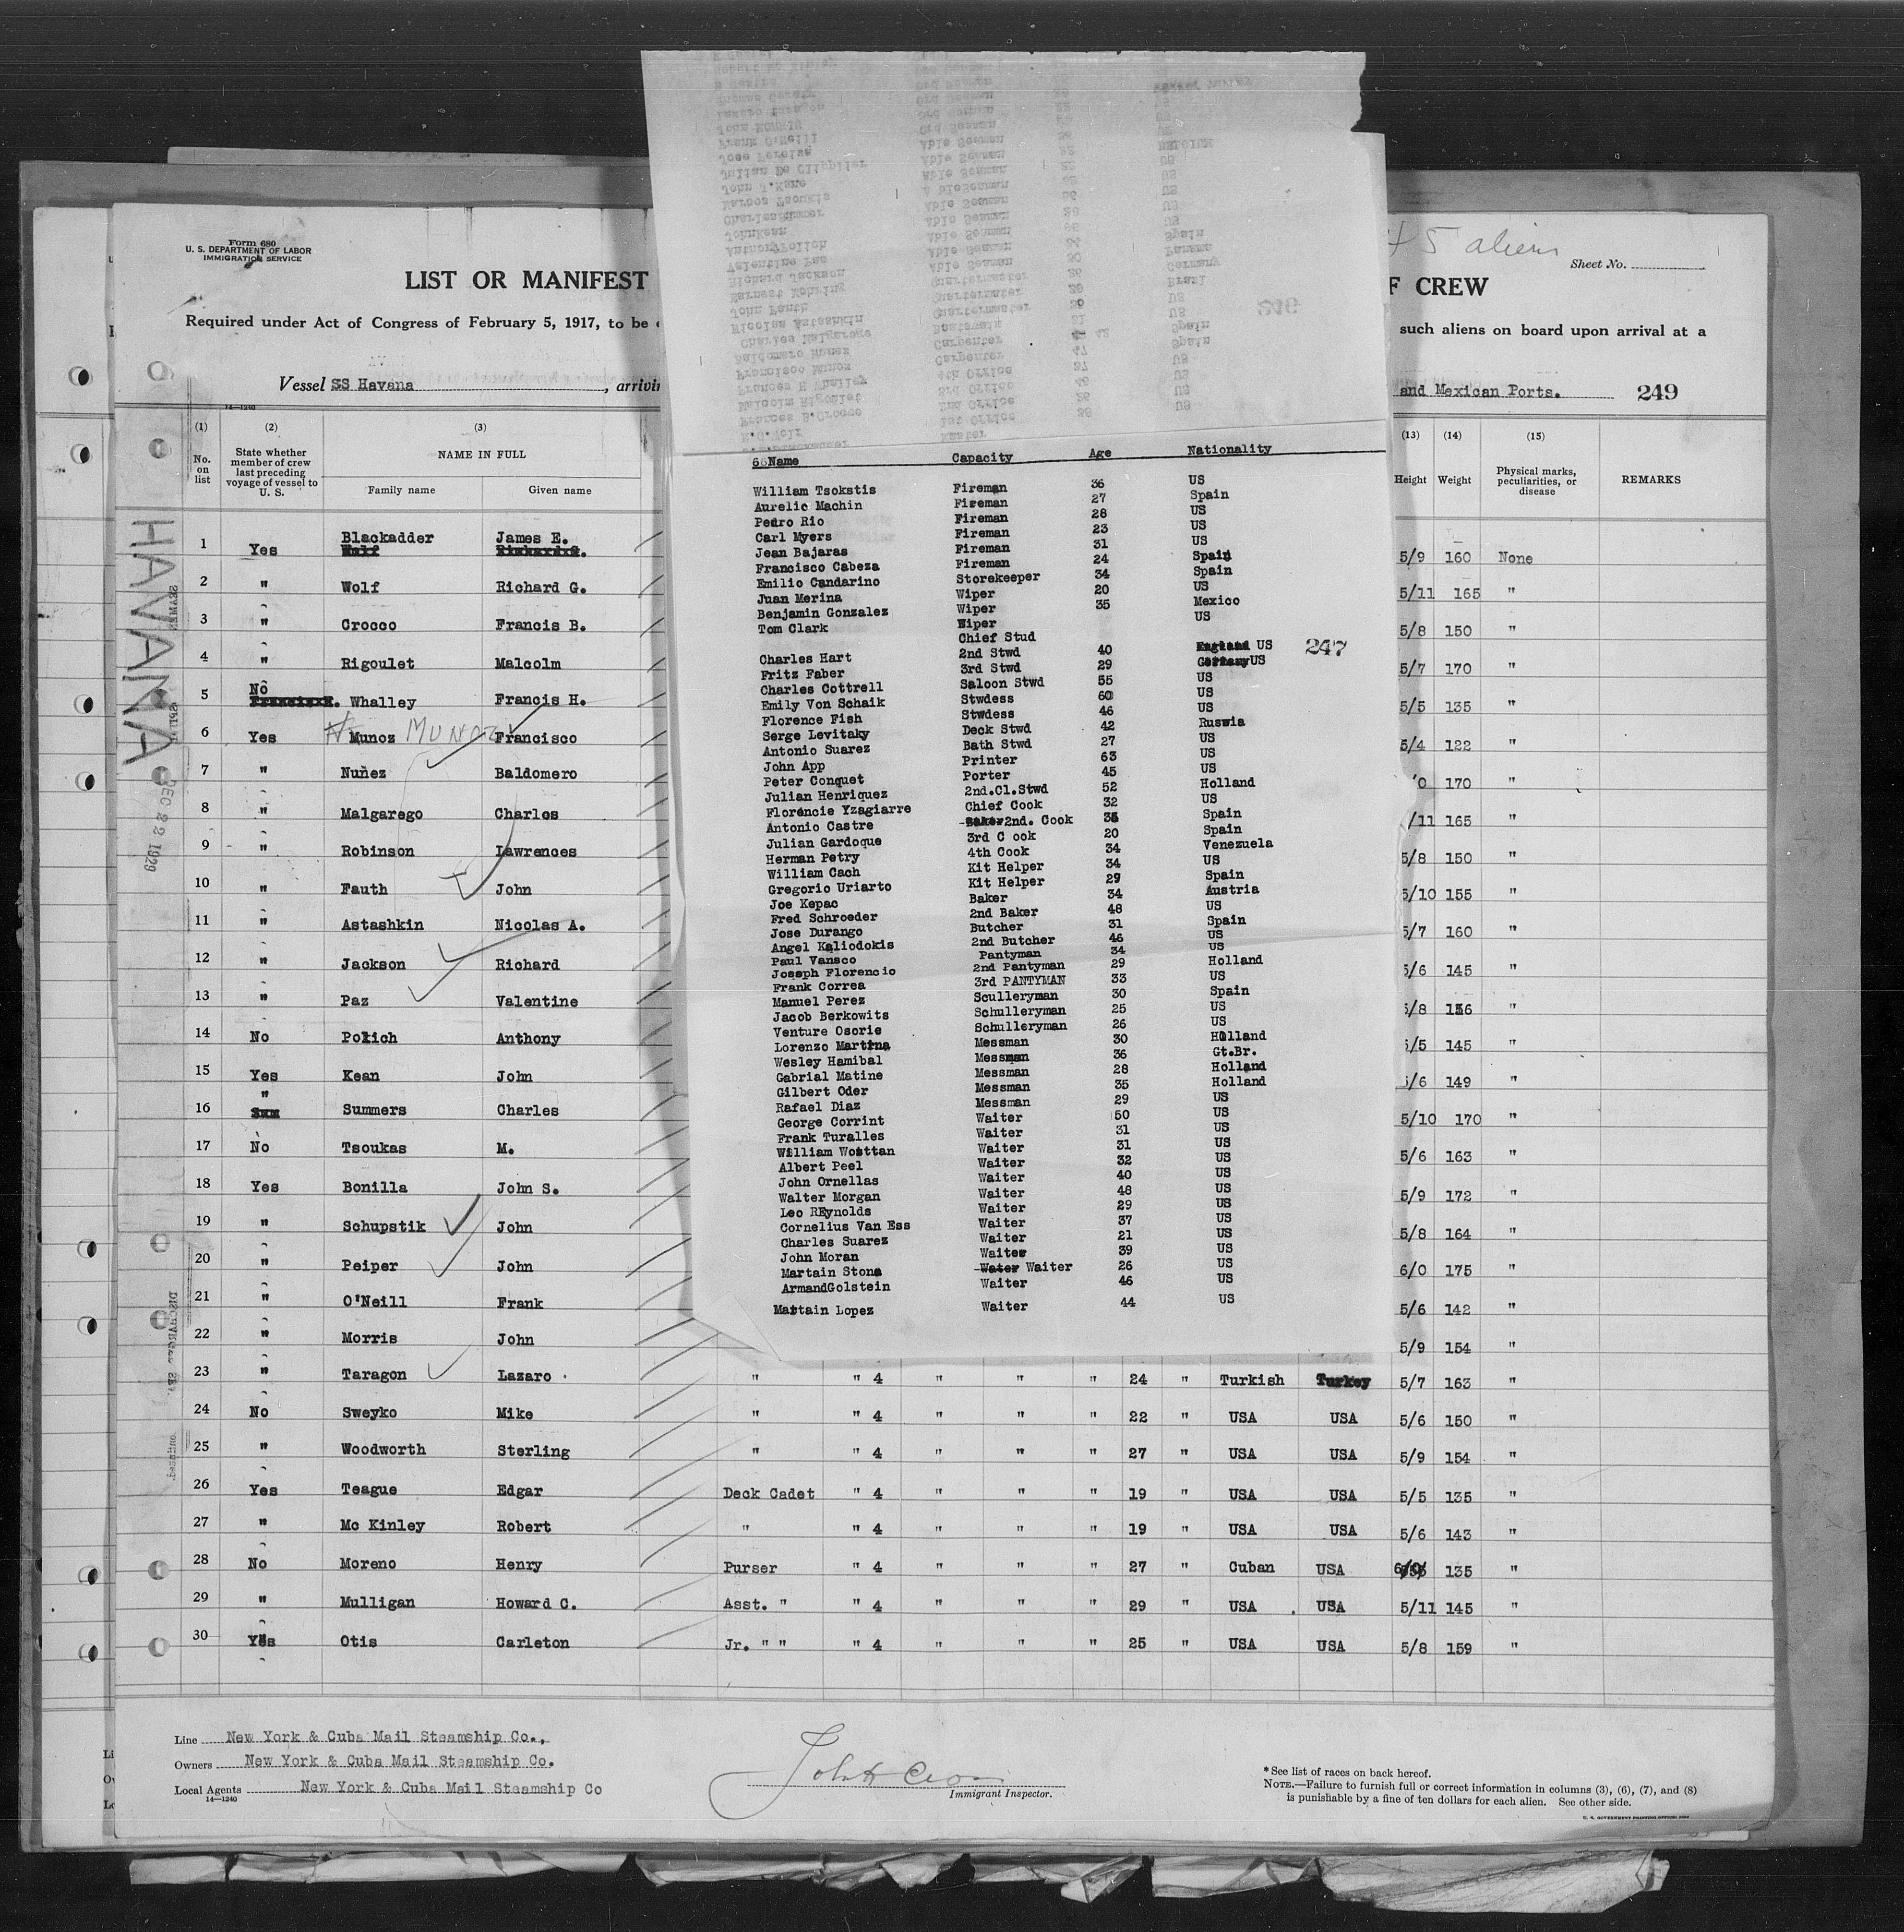 Form 680
U. S. DEPARTMENT OF LABOR
IMMIGRATION SERVICE
LIST OR MANIFEST
F CREW
5 aliens
Sheet No.
Required under Act of Congress of February 5, 1917, to be
such aliens on board upon arrival at a
Vessel SS Havana , arrivin
and Mexican Ports. 249
14—1240
(1) (2) (3) (13) (14) (15)
No. on list
State whether member of crew last preceding voyage of vessel to U. S.
NAME IN FULL
Family name Given name
Height Weight Physical marks, peculiarities, or disease REMARKS
HAVANA
DEC 22 1929
1 Yes Blackadder James E. 5/9 160 None
2 " Wolf Richard G. 5/11 165 "
3 " Crocco Francis B. 5/8 150 "
4 " Rigoulet Malcolm 5/7 170 "
5 No Whalley Francis H. 5/5 135 "
6 Yes Munoz MUNOZ Francisco 5/4 122 "
7 " Nuñez Baldomero '0 170 "
8 " Malgarego Charles /11 165 "
9 " Robinson Lawrences 5/8 150 "
10 " Fauth John 5/10 155 "
11 " Astashkin Nicolas A. 5/7 160 "
12 " Jackson Richard 5/6 145 "
13 " Paz Valentine 5/8 156 "
14 No Polich Anthony 5/5 145 "
15 Yes Kean John 5/6 149 "
16 " Summers Charles 5/10 170 "
17 No Tsoukas M. 5/6 163 "
18 Yes Bonilla John S. 5/9 172 "
19 " Schupstik John 5/8 164 "
20 " Peiper John 6/0 175 "
21 " O'Neill Frank 5/6 142 "
22 " Morris John 5/9 154 "
23 " Taragon Lazaro " " 4 " " " 24 " Turkish Turkey 5/7 163 "
24 No Sweyko Mike " " 4 " " " 22 " USA USA 5/6 150 "
25 " Woodworth Sterling " " 4 " " " 27 " USA USA 5/9 154 "
26 Yes Teague Edgar Deck Cadet " 4 " " " 19 " USA USA 5/5 135 "
27 " Mc Kinley Robert " " 4 " " " 19 " USA USA 5/6 143 "
28 No Moreno Henry Purser " 4 " " " 27 " Cuban USA 135 "
29 " Mulligan Howard C. Asst. " " 4 " " " 29 " USA USA 5/11 145 "
30 Yes Otis Carleton Jr. " " " 4 " " " 25 " USA USA 5/8 159 "
66Name Capacity Age Nationality
William Tsokstis Fireman 36 US
Aurelio Machin Fireman 27 Spain
Pedro Rio Fireman 28 US
Carl Myers Fireman 23 US
Jean Bajaras Fireman 31 US
Francisco Cabeza Fireman 24 Spain
Emilio Candarino Storekeeper 34 Spain
Juan Merina Wiper 20 US
Benjamin Gonzales Wiper 35 Mexico
Tom Clark Wiper US
Chief Stud
Charles Hart 2nd Stwd 40 England US 247
Fritz Faber 3rd Stwd 29 Germany US
Charles Cottrell Saloon Stwd 55 US
Emily Von Schaik Stwdess 60 US
Florence Fish Stwdess 46 US
Serge Levitaky Deck Stwd 42 Ruswia
Antonio Suarez Bath Stwd 27 US
John App Printer 63 US
Peter Conquet Porter 45 US
Julian Henriquez 2nd.Cl.Stwd 52 Holland
Florencie Yzagiarre Chief Cook 32 US
Antonio Castre Baker2nd. Cook 35 Spain
Julian Gardoque 3rd C ook 20 Spain
Herman Petry 4th Cook 34 Venezuela
William Cach Kit Helper 34 US
Gregorio Uriarto Kit Helper 29 Spain
Joe Kepac Baker 34 Austria
Fred Schroeder 2nd Baker 48 US
Jose Durango Butcher 31 Spain
Angel Kaliodokis 2nd Butcher 46 US
Paul Vansco Pantyman 34 US
Joseph Florencio 2nd Pantyman 29 Holland
Frank Correa 3rd PANTYMAN 33 US
Manuel Perez Sculleryman 30 Spain
Jacob Berkowits Schulleryman 25 US
Venture Osorie Schulleryman 26 US
Lorenzo Martina Messman 30 Holland
Wesley Hamibal Messman 36 Gt.Br.
Gabrial Matine Messman 28 Holland
Gilbert Oder Messman 35 Holland
Rafael Diaz Messman 29 US
George Corrint Waiter 50 US
Frank Turalles Waiter 31 US
William Wosttan Waiter 31 US
Albert Peel Waiter 32 US
John Ornellas Waiter 40 US
Walter Morgan Waiter 48 US
Leo REynolds Waiter 29 US
Cornelius Van Ess Waiter 37 US
Charles Suarez Waiter 21 US
John Moran Waiter 39 US
Martain Stona Water Waiter 26 US
ArmandGolstein Waiter 46 US
Martain Lopez Waiter 44 US
Line New York & Cuba Mail Steamship Co.,
Owners New York & Cuba Mail Steamship Co.
Local Agents New York & Cuba Mail Steamship Co
14—1240
Immigrant Inspector.
* See list of races on back hereof.
NOTE.—Failure to furnish full or correct information in columns (3), (6), (7), and (8)
is punishable by a fine of ten dollars for each alien. See other side.